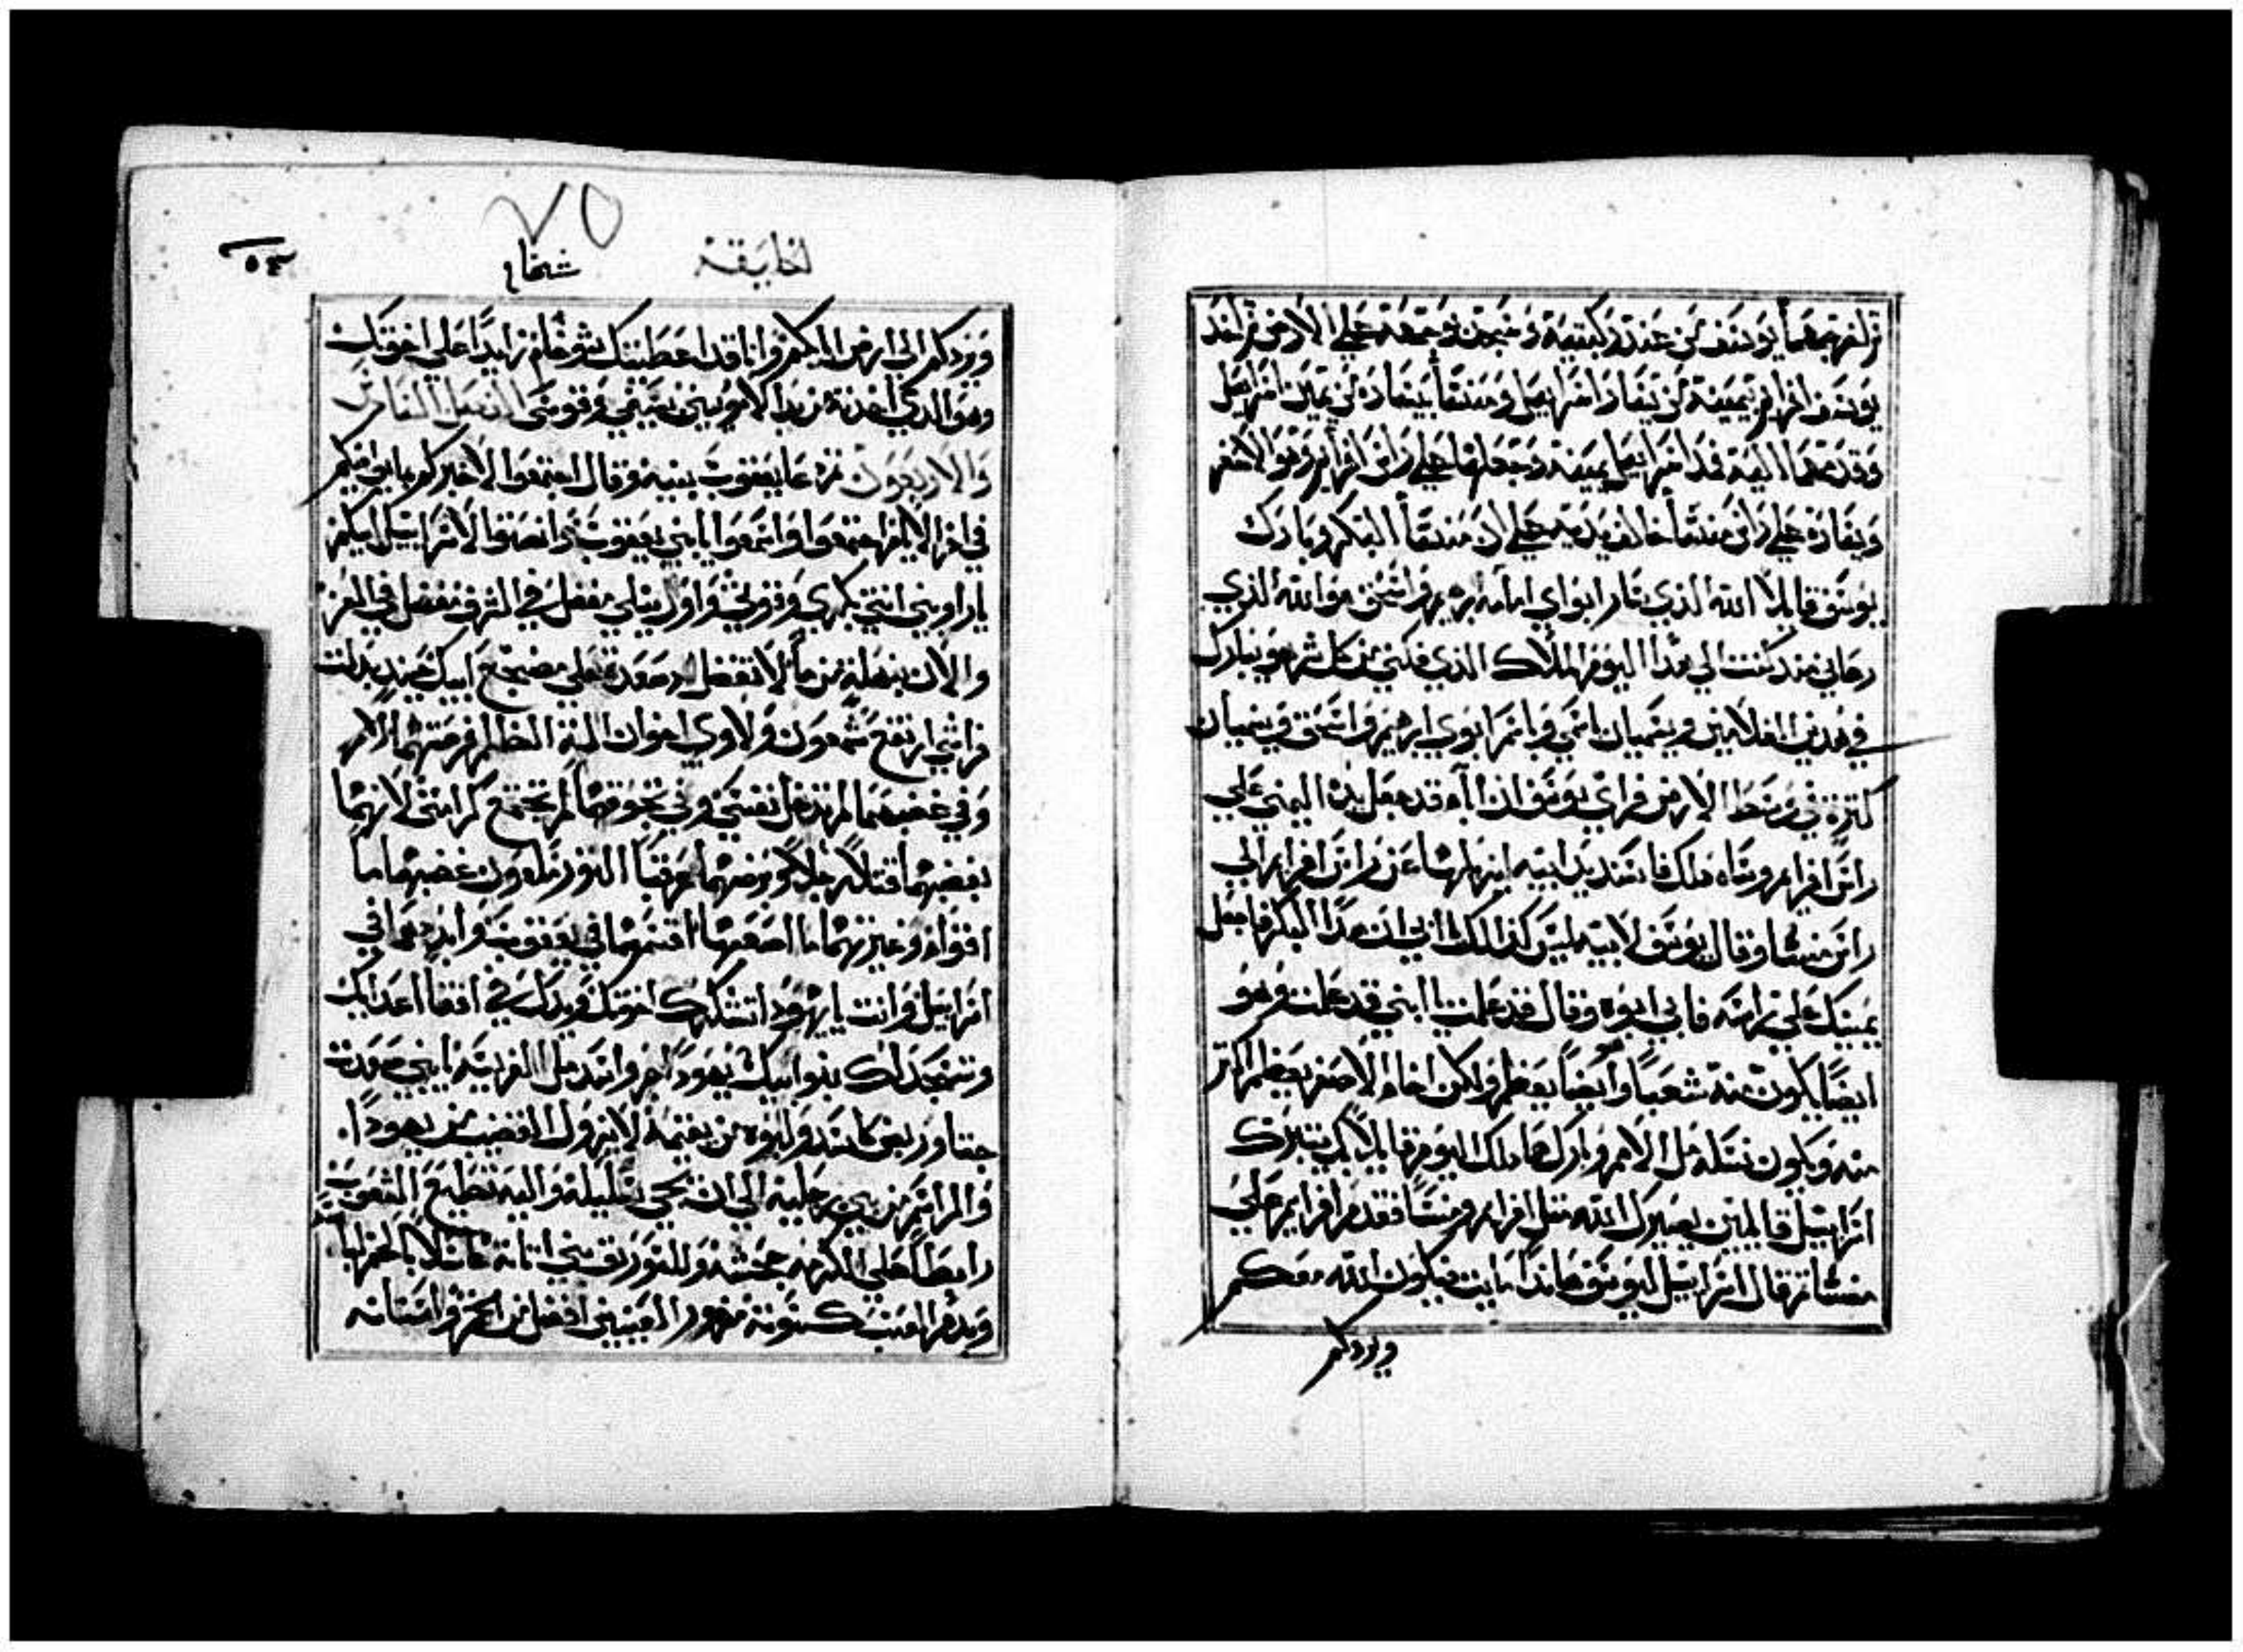 ثم اخرجهما يوسف من عند ركبتيه وسجد بوجهه علي الارض ثم اخذ
يوسف افرام بيمينه عن يسار اسراييل ومنسا بيساره عن يمين اسراييل
وقدمهما اليه فمد اسراييل يمينه وجعلها علي راس افرام وهو الاصغر
ويساره علي راس منسا خالف يديه علي ان منسا البكر وبارك
يوسف قايلا الله الذي سار ابواي امامه ابرهيم واسحق هو الله الذي
رعاني منذ كنت الي هذا اليوم الملاك الذي فكني من كل شر هو يبارك
في هذين الغلامين ويسميان باسمي وباسم ابوي ابرهيم واسحق وينميان
كثرة في وسط الارض فراي يوسف ان اباه قد جعل يده اليمني علي
راس افرام وساه ذلك فاسند يد ابيه لينزلها عن راس افرام الي
راس منسا وقال يوسف لابيه ليس كذالك يا ابي ان هذا البكر فاجعل
يمينك علي راسه فابي ابوه وقال قد علمت يا ابني قد علمت وهو
ايضا يكون منه شعبا وايضا يعظم ولكن اخاه الاصغر يعظم اكثر
منه ويكون نسله مل الامم وباركهما ذلك اليوم قايلا بك يتبرك
اسراييل قايلين يصيرك الله مثل افرام ومنسا فقدم افرام علي
منسا ثم قال اسراييل ليوسف هانذا مايت فيكون الله معكم
ويردكم
الخليقة
شخام
٧٥
٥٤
ويردكم الي ارض ابايكم وانا قد اعطيتك شوخام زايدا علي اخوتك
وهو الذي اخذته من يد الاموريين بسيفي وقوسي الفصل الثامن
والاربعون ثم دعا يعقوب بنيه وقال اجتمعوا لاخبركم بما يوافيكم
في اخر الايام اجتمعوا واسمعوا يا بني يعقوب وانصتوا لاسراييل ابيكم
ياراوبين انت بكري وقوتي واول بنلي مفضل في الشرف مفضل في العز
والان بنهلة من ما لا تفضل اذ صعدت علي مضجع ابيك حينيذ بدلت
فراشي ارتفع شمعون ولاوي اخوان الية الظلم فرحتهما الامر
وفي غضبهما لم تدخل نفسي وفي جوقهما لم تجتمع كرامتي لانهما
بغضبهما قتلا رجلا وبرضهما عرقبا الثور ملعون غضبهما ما
اقواه وغيرتهما ما اصعبها اقسمهما في يعقوب وابددهم في
اسراييل وانت يا يهودا تشكرك اخوتك ويدك في اقفا اعدايك
وتسجد لك بنو ابيك يهودا جرو اسد من الفريسة يا بني صعدت
جثا وربض كاسد ولبوه من يقيمه لا يزول القضيب من يهودا
والمراسم من بين رجليه الي ان يجي شيله واليه تطيع الشعوب
رابطا علي الكرمه جحشه وللسورق بني اتانه غاسلا بالخمر لباسه
وبدم العنب كسوته مزور العينين افضل من الخمر واسنانه